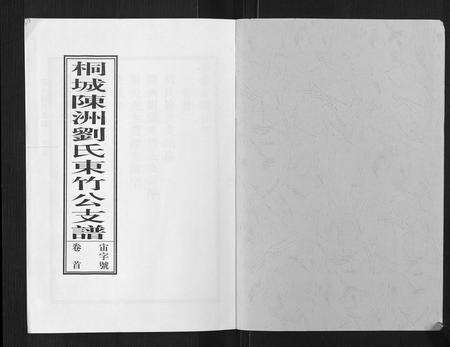 桐城陳洲劉氏東竹公支譜
宙字號
卷首